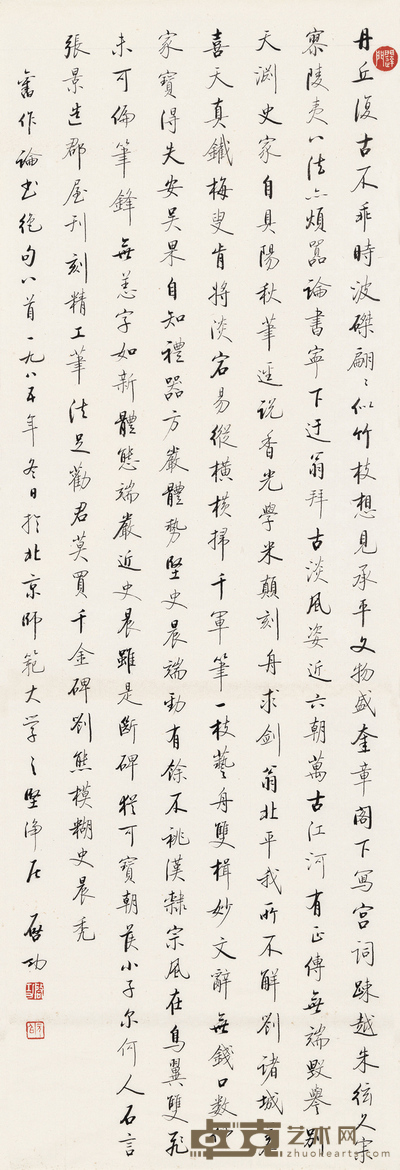 丹丘復古不乖時波磔翩〻似竹枝想見承平文物盛奎章閣下寫宮詞踈越朱絃久寂
寥陵夷八法亦煩囂論書寧下迂翁拜古淡風姿近六朝萬古江河有正傳無端毀譽別
天淵史家自具陽秋筆逕說香光學米顛刻舟求劍翁北平我所不解劉諸城差
喜天真鐵梅叟肯將淡宕易縱橫橫掃千軍筆一枝藝舟雙楫妙文辭無錢口數他
家寶得失安吳果自知禮器方嚴體勢堅史晨端勁有餘不祧漢隸宗風在鳥翼雙飛
未可偏筆鋒無恙字如新體態端嚴近史晨雖是斷碑猶可寶朝侯小子尔何人石言
張景造郡屋刊刻精工筆法足勸君莫買千金碑劉熊模糊史晨禿
舊作論书絕句八首一九八五年冬日於北京師範大学之堅淨居 啟功
卓克艺术网
www.zhuokearts.com